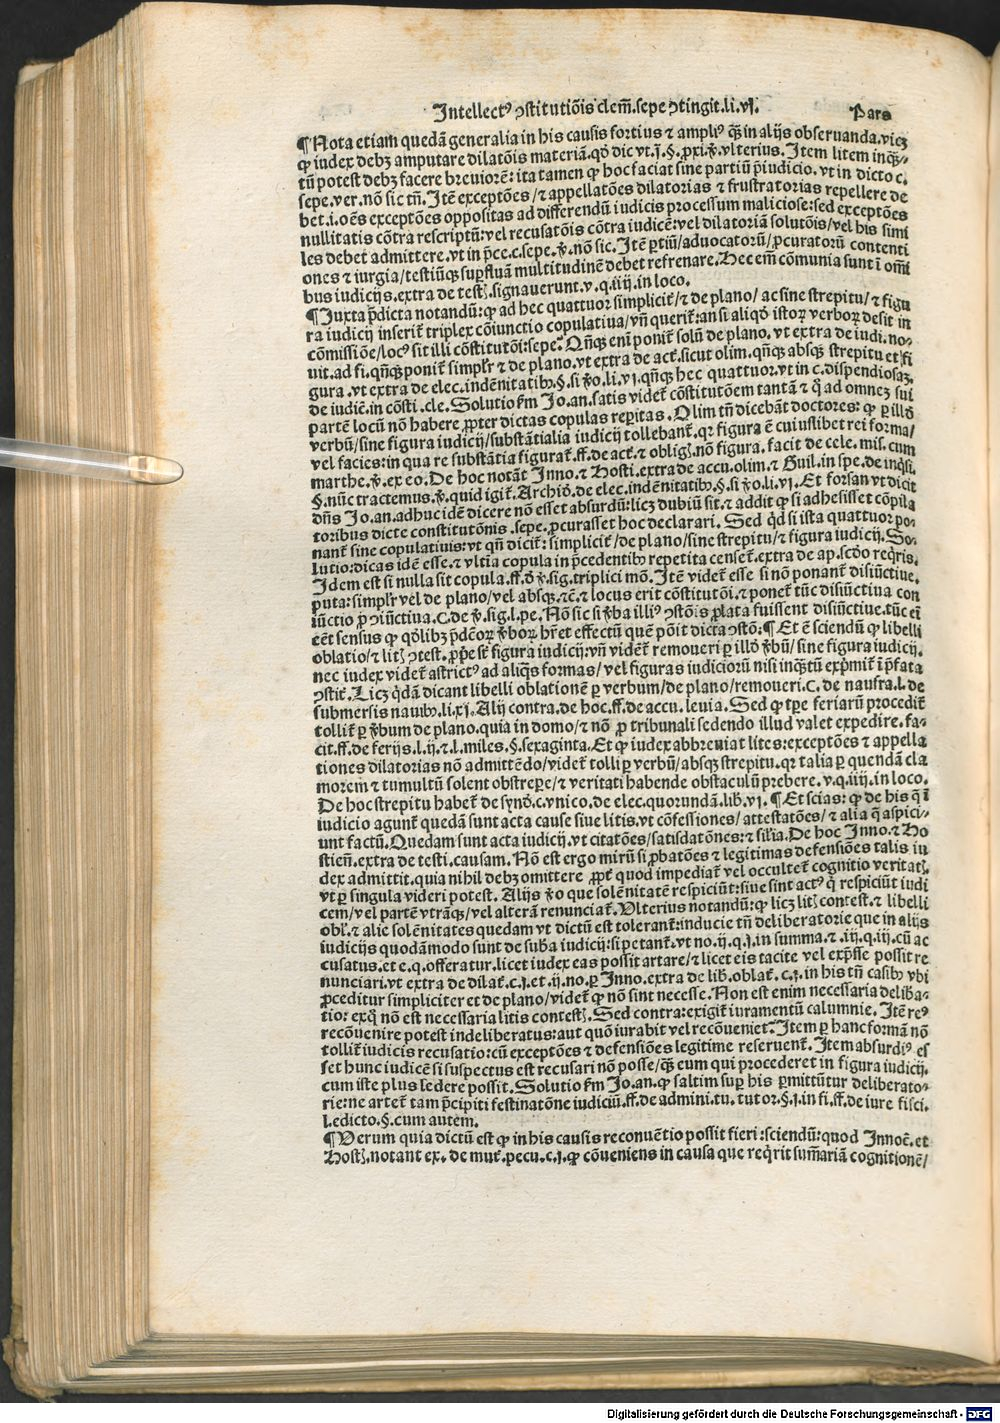 Intellectꝰ ꝯstitutiõis clem̃. sepe ꝯtingit. li. vj. Pars
¶ Nota etiam quedã generalia in his causis fortius ⁊ ampliꝰ q̃ in alijs obseruanda. vicꝫ
ꝙ iudex debꝫ amputare dilatõis materiã. qđ dic vt. j. §. ꝓxi. ꝟ. vlterius. Item litem inq̃-
tũ potest debꝫ facere breuiorẽ: ita tamen ꝙ hoc faciat sine partiũ p̃iudicio. vt in dicto c.
sepe. ver. nõ sic tñ. Itẽ exceptões / ⁊ appellatões dilatorias ⁊ frustratorias repellere de
bet. i. oẽs exceptões oppositas ad differendũ iudicis processum maliciose: sed exceptões
nullitatis cõtra rescriptũ: vel recusatõis cõtra iudicẽ: vel dilatoriã solutõis / vel his simi
les debet admittere. vt in p̃ce. c. sepe. ꝟ. nõ sic. Itẽ ꝑtiũ / aduocatorũ / ꝓcuratorũ contenti
ones ⁊ iurgia / testiũqꝫ suꝑfluã multitudinẽ debet refrenare. Hec em̃ cõmunia sunt ĩ om̃i
bus iudicijs. extra de testꝭ. signauerunt. v. q. iiij. in loco.
¶ Juxta p̃dicta notandũ: ꝙ ad hec quattuor simplicit̃ / ⁊ de plano / ac sine strepitu / ⁊ figu
ra iudicij inserit̃ triplex cõiunctio copulatiua / vñ querit̃: an si aliqđ istoꝝ verboꝝ desit in
cõmissiõe / locꝰ sit illi cõstitutõi: sepe. Qñqꝫ eni ponit̃ solũ de plano. vt extra de iudi. no-
uit. ad fi. qñqꝫ ponit̃ simplr̃ ⁊ de plano. vt extra de act̃. sicut olim. qñqꝫ absqꝫ strepitu et fi
gura. vt extra de elec. indẽnitatibꝰ. §. si ꝟo. li. vj. qñqꝫ hec quattuor. vt in c. dispendiosaꝫ.
de iudiẽ. in cõsti. cle. Solutio ẜm Jo. an. satis videt̃ cõstitutõem tantã ⁊ q̃ ad omneꝫ sui
partẽ locũ nõ habere ꝓpter dictas copulas reꝑitas. Olim tñ dicebãt doctores: ꝙ ꝑ illđ
verbũ / sine figura iudicij / substãtialia iudicij tollebant̃. qꝛ figura ẽ cuiuslibet rei forma /
vel facies: in qua re substãtia figurat̃. ff. de act̃. ⁊ obligꝭ. nõ figura. facit de cele. mis. cum
marthe. ꝟ. ex eo. De hoc notãt Inno. ⁊ Hosti. extra de accu. olim. ⁊ Guil. in spe. de inq̃si.
§. nũc tractemus. ꝟ. quid igit̃. Archiđ. de elec. indẽnitatibꝰ. §. si ꝟo. li. vj. Et forsan vt dicit
dñs Jo. an. adhuc idẽ dicere nõ esset absurdũ: licꝫ dubiũ sit. ⁊ addit ꝙ si adhesisset cõpila
toribus dicte constitutõnis. sepe. ꝓcurasset hoc declarari. Sed qđ si ista quattuor po-
nant̃ sine copulatiuis: vt qñ dicit̃: simplicit̃ / de plano / sine strepitu / ⁊ figura iudicij. So-
lutio: dicas idẽ esse. ⁊ vltia copula in p̃cedentibꝰ repetita censet̃. extra de ap. scđo req̃ris.
Idem est si nulla sit copula. ff. đ ꝟ. sig. triplici mõ. Itẽ videt̃ esse si nõ ponant̃ disiũctiue.
puta: simplr̃ vel de plano / vel absqꝫ. ⁊c̃. ⁊ locus erit cõstitutõi. ⁊ ponet̃ tũc disiũctiua con
iũctio ꝓ ꝯiũctiua. C. de ꝟ. sig. l. pe. Nõ sic si ꝟba illiꝰ ꝯstõis ꝓlata fuissent disiũctiue. tũc eĩ
eẽt sensus ꝙ qđlibꝫ p̃deõꝝ ꝟboꝝ hr̃et effectũ quẽ põit dicta ꝯstõ: ¶ Et ẽ sciendũ ꝙ libelli
oblatio / ⁊ litꝭ ꝯtest. ꝓp̃e sĩ figura iudicij. vñ videt̃ remoueri ꝑ illđ ꝟbũ / sine figura iudicij.
nec iudex videt̃ astrictꝰ ad aliq̃s formas / vel figuras iudiciorũ nisi inq̃tũ exp̃mit̃ ĩ p̃fata
ꝯstit̃. Licꝫ q̃dã dicant libelli oblationẽ ꝑ verbum / de plano / remoueri. C. de naufra. l. de
submersis nauibꝰ. li. xj. Alij contra. de hoc. ff. de accu. leuia. Sed ꝙ tp̃e feriarũ procedit̃
tollit̃ ꝑ ꝟbum de plano. quia in domo / ⁊ nõ ꝓ tribunali sedendo illud valet expedire. fa-
cit. ff. de ferijs. l. ij. ⁊. l. miles. §. sexaginta. Et ꝙ iudex abbreuiat lites: exceptões ⁊ appella
tiones dilatorias nõ admittẽdo / videt̃ tolli ꝑ verbũ / absqꝫ strepitu. qꝛ talia ꝑ quendã cla
morem ⁊ tumultũ solent obstreꝑe / ⁊ veritati habende obstaculũ prebere. v. q. iiij. in loco.
De hoc strepitu habet̃ de synđ. c. vnico. de elec. quorundã. lib. vj. ¶ Et scias: ꝙ de his q̃ ĩ
iudicio agunt̃ quedã sunt acta cause siue litis. vt cõfessiones / attestatões / ⁊ alia q̃ aspici-
unt factũ. Quedam sunt acta iudicij. vt citatões / satisdatõnes: ⁊ sil̃ia. De hoc Inno. ⁊ Ho
stieñ. extra de testi. causam. Nõ est ergo mirũ si ꝓbatões ⁊ legitimas defensiões talis iu
dex admittit. quia nihil debꝫ omittere ꝓpt̃ quod impediat̃ vel occultet̃ cognitio veritatꝭ.
vt ꝑ singula videri potest. Alijs ꝟo que solẽnitatẽ respiciũt: siue sint actꝰ q̃ respiciũt iudi
cem / vel partẽ vtrãqꝫ / vel alterã renunciat̃. Vlterius notandũ: ꝙ licꝫ litꝭ contest. ⁊ libelli
obl̃. ⁊ alie solẽnitates quedam vt dictũ est tolerant̃: inducie tñ deliberatorie que in alijs
iudicijs quodãmodo sunt de suba iudicij: si petant̃. vt no. ij. q. j. in summa. ⁊. iij. q. iij. cũ ac
cusatus. et e. q. offeratur. licet iudex eas possit artare / ⁊ licet eis tacite vel exp̃sse possit re
nunciari. vt extra de dilat̃. c. j. et. ij. no. ꝑ Inno. extra de lib. oblat̃. c. j. in his tñ casibꝰ vbi
ꝓceditur simpliciter et de plano / videt̃ ꝙ nõ sint necesse. Non est enim necessaria deliba-
tio: exq̃ nõ est necessaria litis contestꝭ. Sed contra: exigit̃ iuramentũ calumnie. Itẽ reꝰ
recõuenire potest indeliberatus: aut quõ iurabit vel recõueniet̃. Item ꝑ hanc formã nõ
tollit̃ iudicis recusatio: cũ exceptões ⁊ defensiões legitime reseruent̃. Item absurdiꝰ es
set hunc iudicẽ si suspectus est recusari nõ posse / qꝫ eum qui procederet in figura iudicij.
cum iste plus ledere possit. Solutio ẜm Jo. an. ꝙ saltim suꝑ his ꝑmittũtur deliberato-
rie: ne artet̃ tam p̃cipiti festinatõne iudiciũ. ff. de admini. tu. tutor. §. j. in fi. ff. de iure fisci.
l. edicto. §. cum autem.
¶ Verum quia dictũ est ꝙ in his causis reconuẽtio possit fieri: sciendũ: quod Innoc̃. et
Hostꝭ. notant ex. de mut̃. pecu. c. j. ꝙ cõueniens in causa que req̃rit sum̃ariã cognitionẽ /
Digitalisierung gefördert durch die Deutsche Forschungsgemeinschaft - DFG